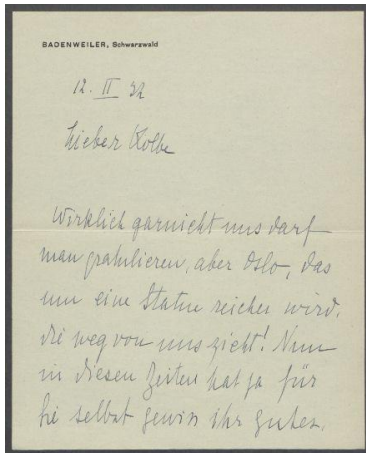 BADENWEILER, Schwarzwald
12. II 32
Lieber Kolbe
Wirklich garnicht uns darf
man gratulieren, aber Oslo, das
um eine Statue reicher wird.
die weg von uns zieht! Nun
in diesen Zeiten hat ja für
Sie selbst gewis ihr gutes.